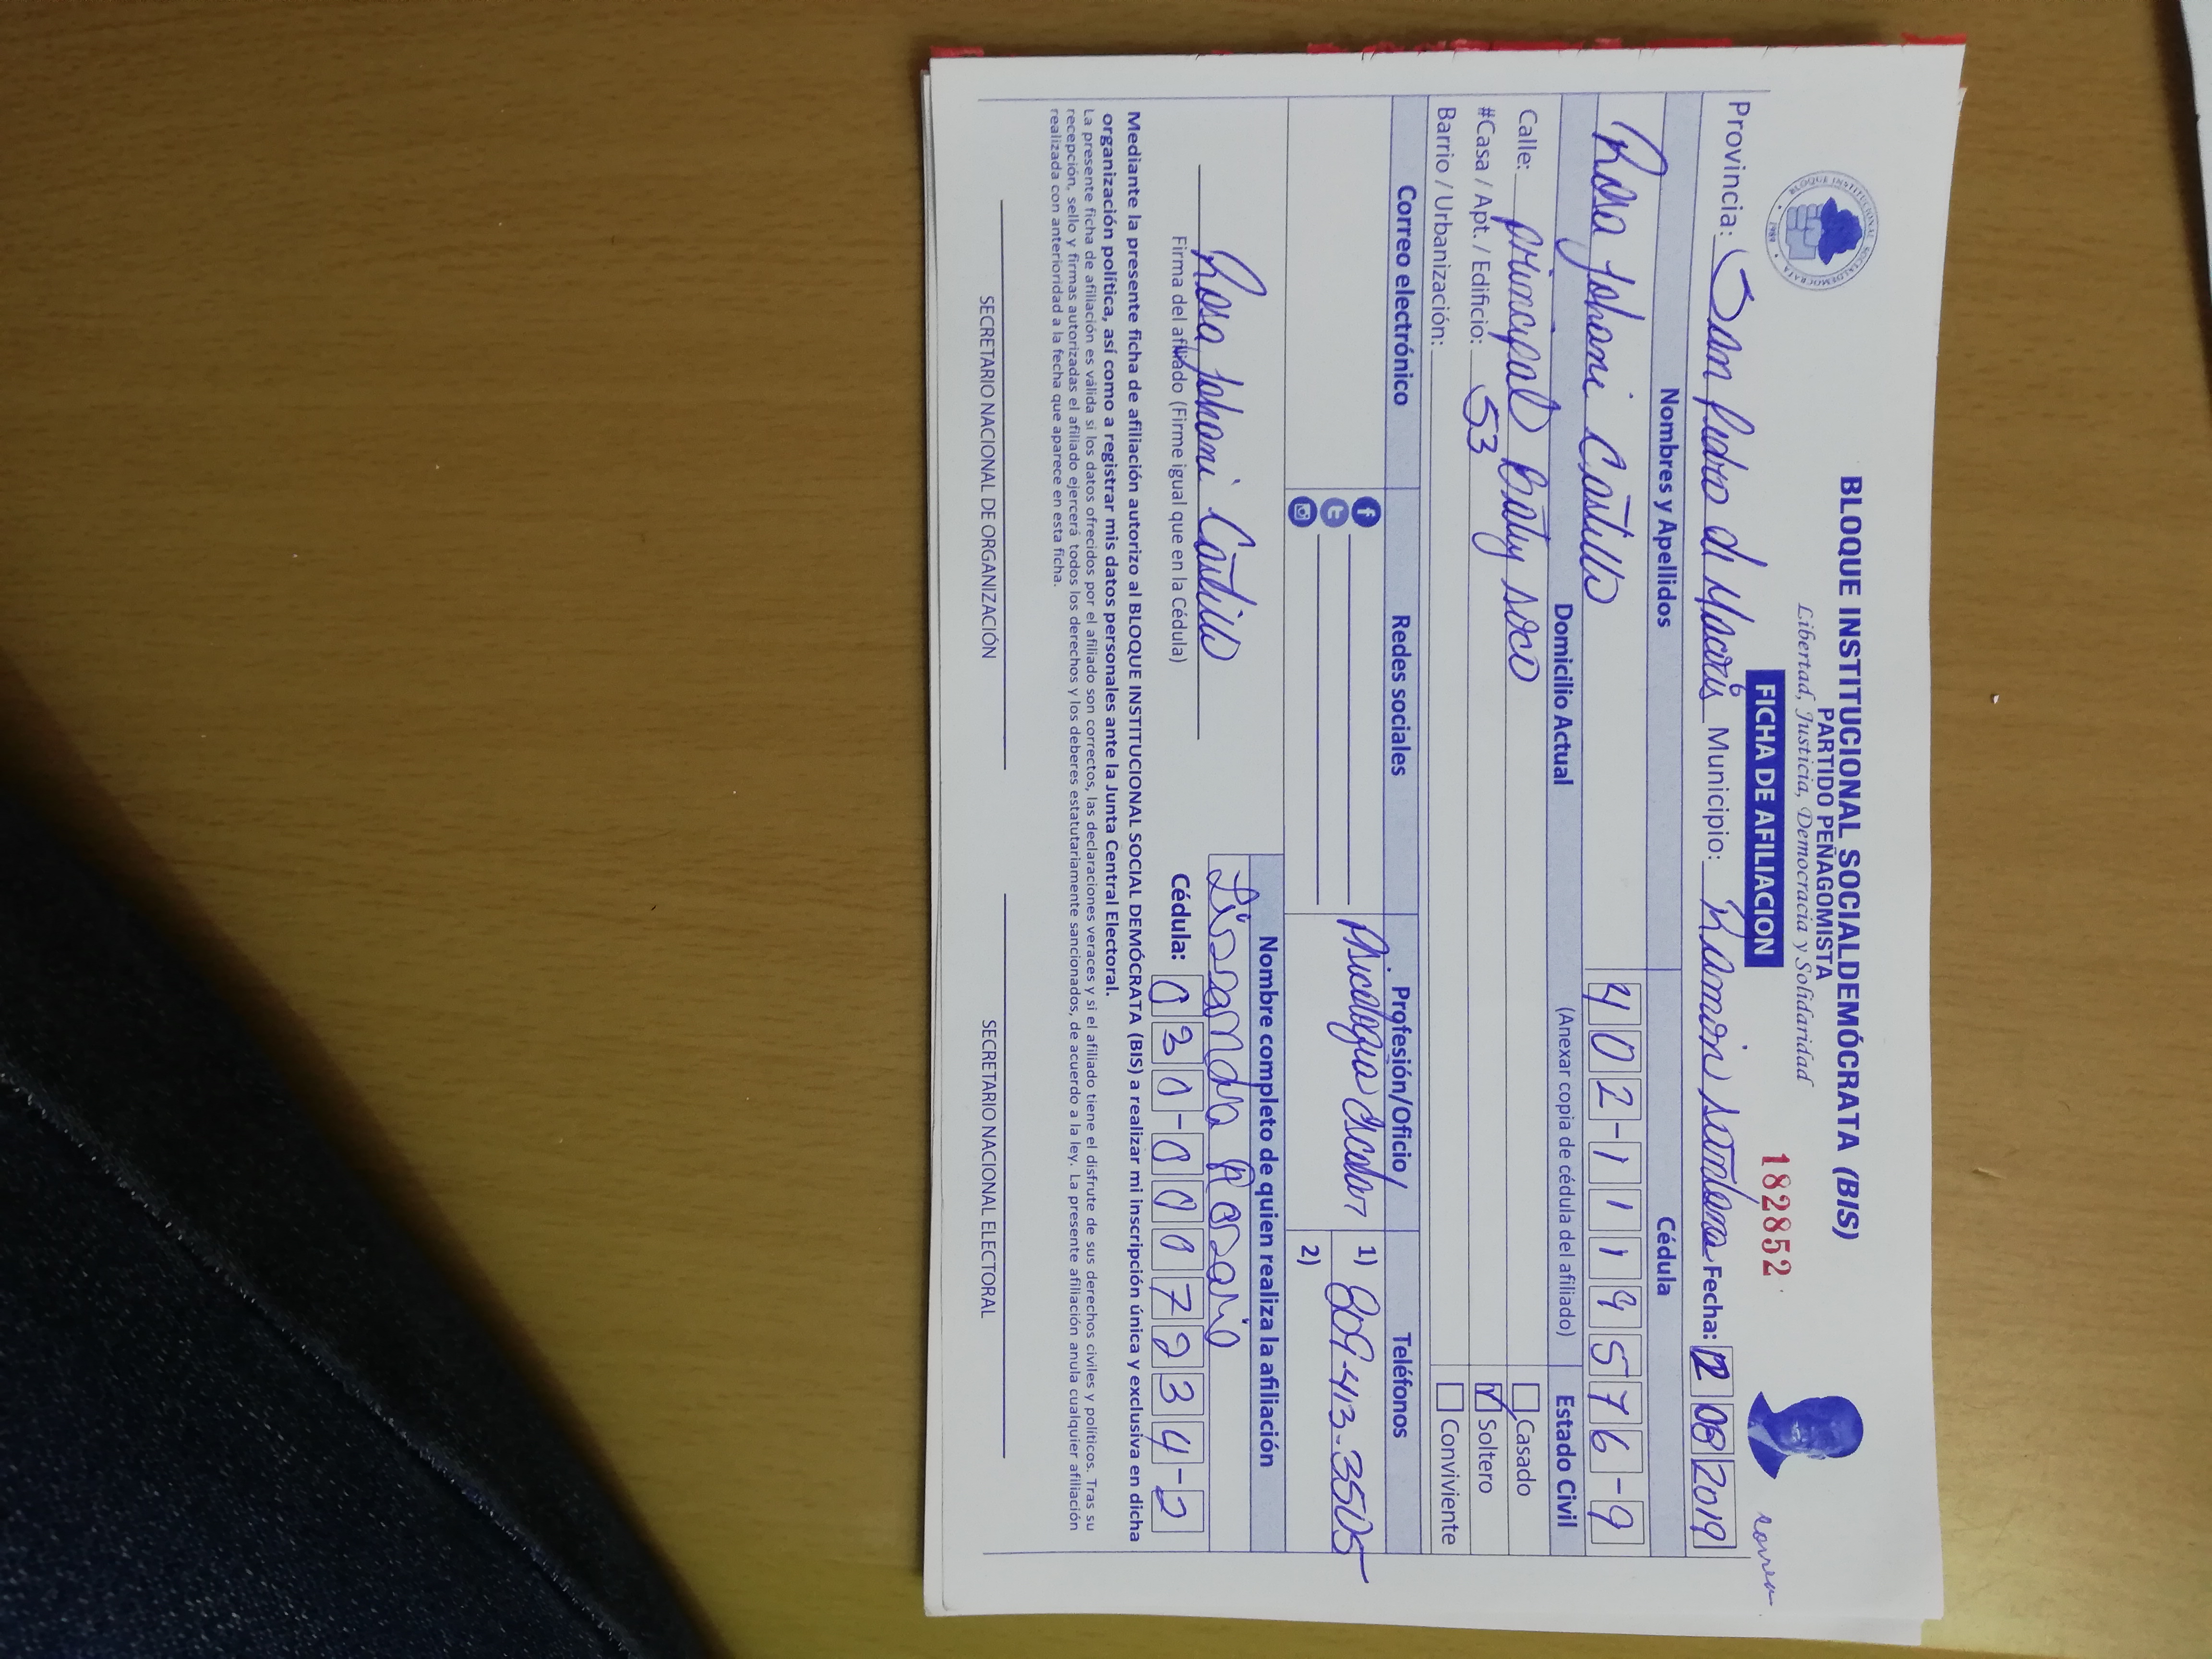 BLOQUE INSTITUCIONAL SOCIALDEMÓCRATA (BIS)
PARTIDO PEÑAGOMISTA
Libertad, Justicia, Democracia y Solidaridad
FICHA DE AFILIACION
182852
BLOQUE INSTITUCIONAL SOCIALDEMÓCRATA 1989
Provincia: San Pedro de Macorís Municipio: Ramón Santana Fecha: 12 08 2019
Nombres y Apellidos Cédula
Rosa Johani Castillo 402-1119576-9
Domicilio Actual (Anexar copia de cédula del afiliado) Estado Civil
Calle: principal Batey soco Casado
#Casa / Apt. / Edificio: 53 Soltero
Barrio / Urbanización: Conviviente
Correo electrónico Redes sociales Profesión/Oficio Teléfonos
Psicologia Escolar 1) 809-413-3505
2)
Nombre completo de quien realiza la afiliación
Lissandra Rosario
Rosa Johani Castillo
Firma del afiliado (Firme igual que en la Cédula)
Cédula: 030-0007234-2
Mediante la presente ficha de afiliación autorizo al BLOQUE INSTITUCIONAL SOCIAL DEMÓCRATA (BIS) a realizar mi inscripción única y exclusiva en dicha
organización política, así como a registrar mis datos personales ante la Junta Central Electoral.
La presente ficha de afiliación es válida si los datos ofrecidos por el afiliado son correctos, las declaraciones veraces y si el afiliado tiene el disfrute de sus derechos civiles y políticos. Tras su
recepción, sello y firmas autorizadas el afiliado ejercerá todos los derechos y los deberes estatutariamente sancionados, de acuerdo a la ley. La presente afiliación anula cualquier afiliación
realizada con anterioridad a la fecha que aparece en esta ficha.
SECRETARIO NACIONAL DE ORGANIZACIÓN SECRETARIO NACIONAL ELECTORAL